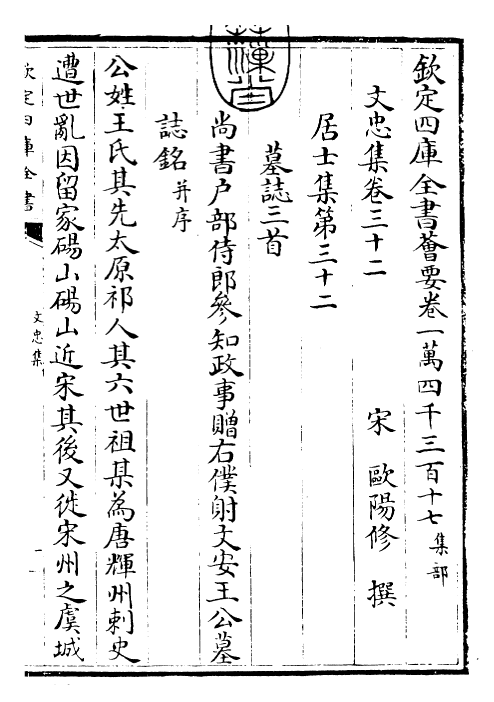 欽定四庫全書薈要卷一萬四千三百十七 集部
文忠集卷三十二 宋 歐陽修 撰
居士集第三十二
墓誌三首
尚書户部侍郎參知政事贈右僕射文安王公墓
誌銘 并序
公姓王氏其先太原祁人其六世祖某為唐輝州刺史
遭世亂因留家碭山碭山近宋其後又徙宋州之虞城
欽定四庫全書
文忠集
一